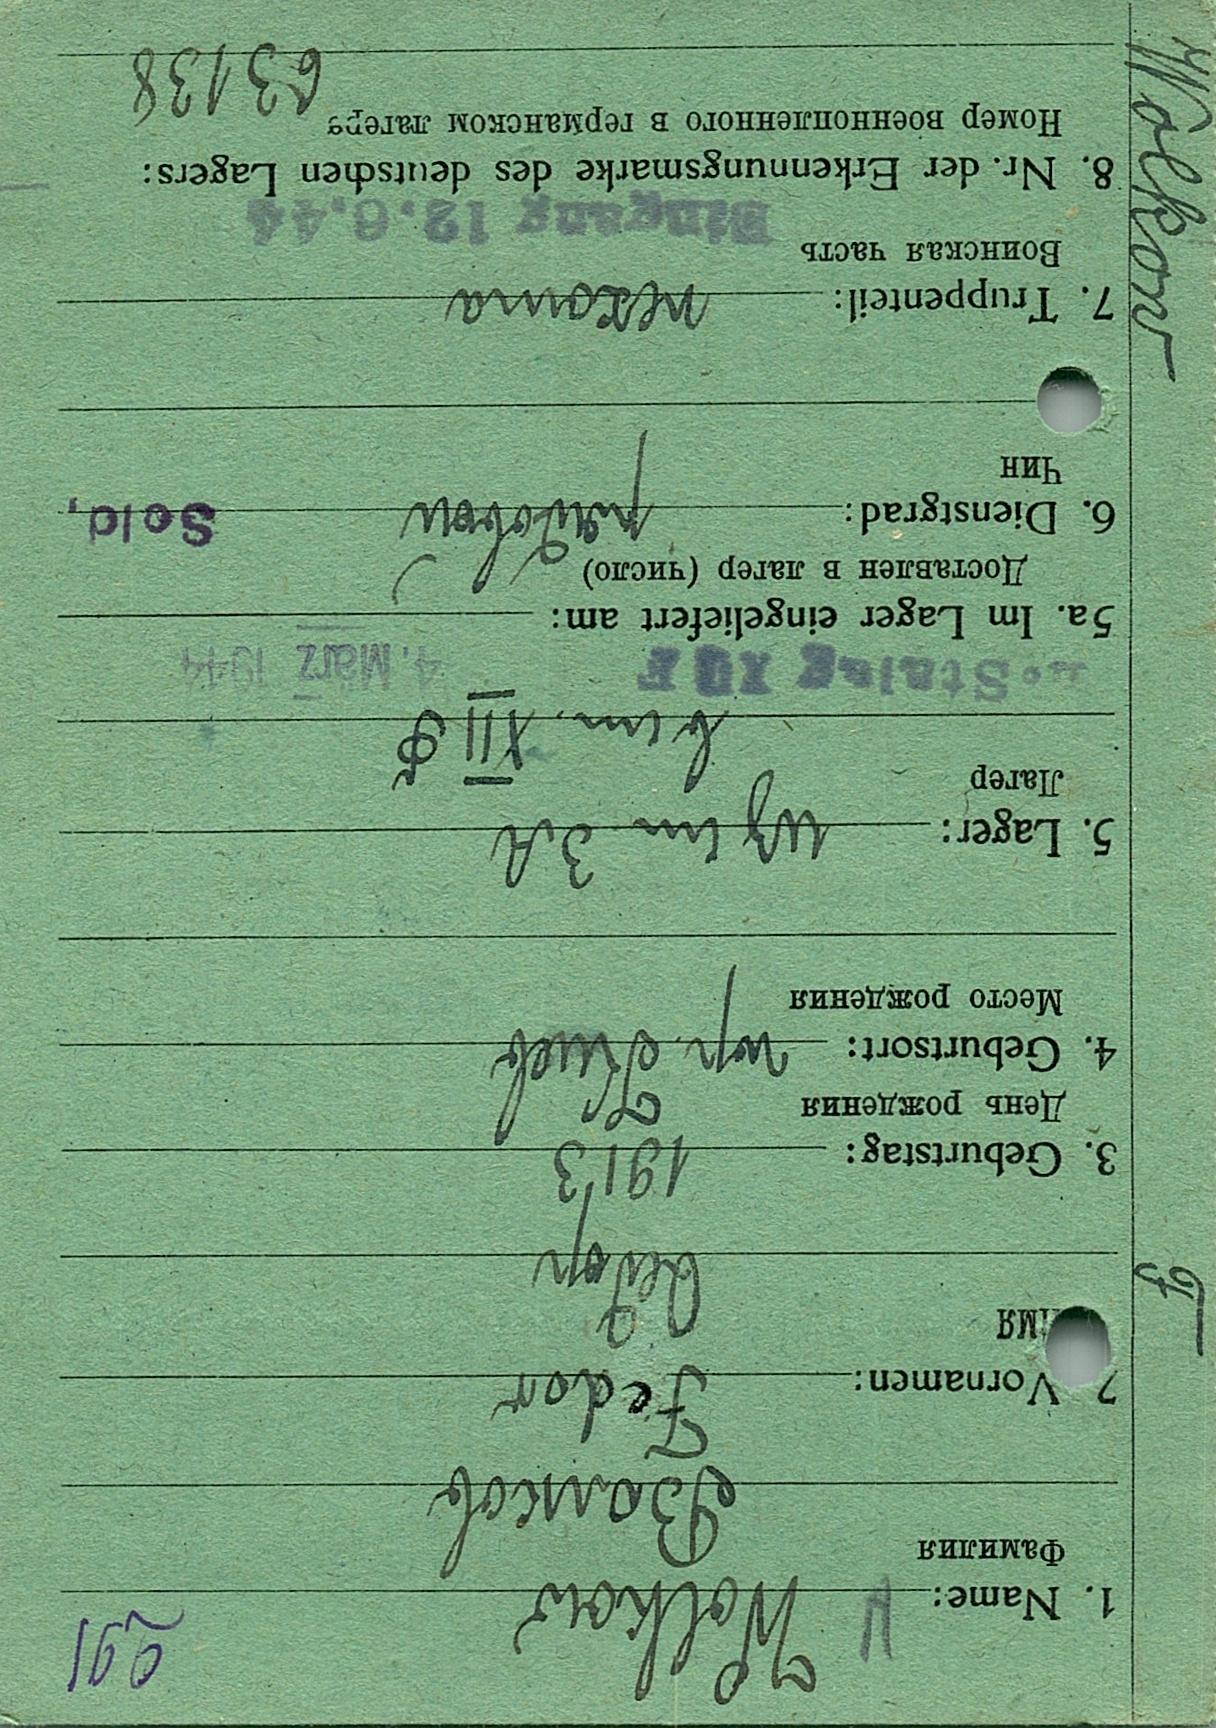 291
1. Name: Wolkow
Фамилия
Волков
2 Vornamen: Fedor
ИМЯ
Федор
3. Geburtstag: 1913
День рождения
4. Geburtsort: гор. Киев
Место рождения
5. Lager: из шт 3А
Лагер
в шт. XII Ф
Stalag XII F
4. März 1944
5a. Im Lager eingeliefert am:
Доставлен в лагер (число)
6. Dienstgrad: рядовой Sold.
Чин
7. Truppenteil: пехота
Воинская часть
Eingang 12.6.44
8. Nr. der Erkennungsmarke des deutschen Lagers:
Номер военнопленного в германском лагере
63138
F
Wolkow